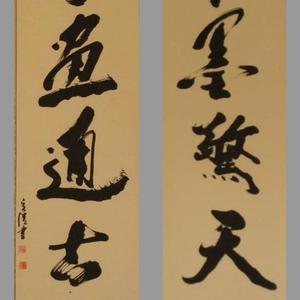 墨驚天
畫通古